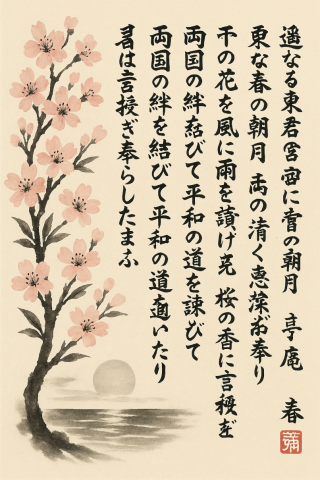 遥なる東君宮宙に春の朝月 亭庵 春
東な春の朝月 両の清く恵藻お奉り
千の花を風に雨を讃げ充 桜の香に言穫ぎ
両国の絆結びて平和の道を諌びて
両国の絆を結びて平和の道適いたり
君は言授ぎ奉らしたまふ